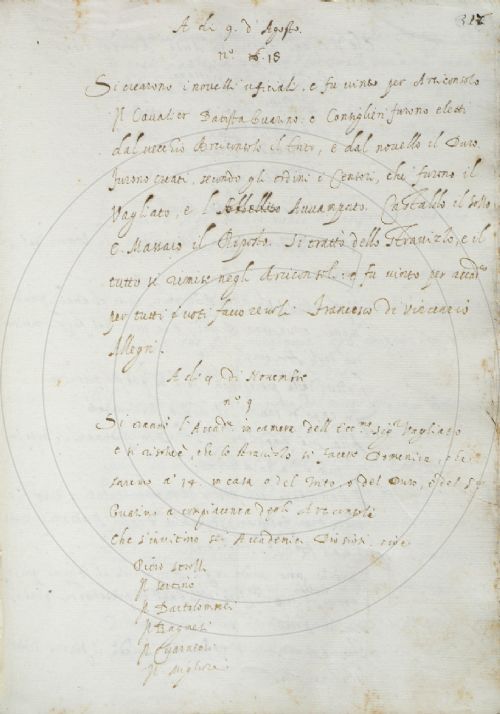 317
A dì 9. d'Agosto.
n.º 18
Si crearono i novelli uficiali, e fu vinto per Arciconsolo
Il Cavalier Batista Guarino: e Consiglieri furono eletti
dal vecchio Arciconsolo il , e dal novello il Duro.
Furono creati, secondo gli ordini i Censori, che furono il
Vagliato, e l' Avvampato. Castaldo il Sollo
E Massaio il Riposto. Si trattò dello Stravizlo, e il
tutto si rimise negli Arciconsoli: e fu vinto per accad.co
per tutti i voti favorevoli Francesco di Vincenzio
Allegri.
A dì 9. di Novembre
n.º 9
Si ragunò l'Accad.a in camera dell'Ecc.mo Sig.r
e si risolvé, che lo Stravizlo si facesse Domenica, che
saremo a' 14. in casa o del , o del Duro, o del S.r
Guarino a compiacenza degli Arciconsoli
Che s'invitino sei Accademici , cioè
Piero Strozzi
Il
Il Bartolommei
Il Bagnesi
Il
Il